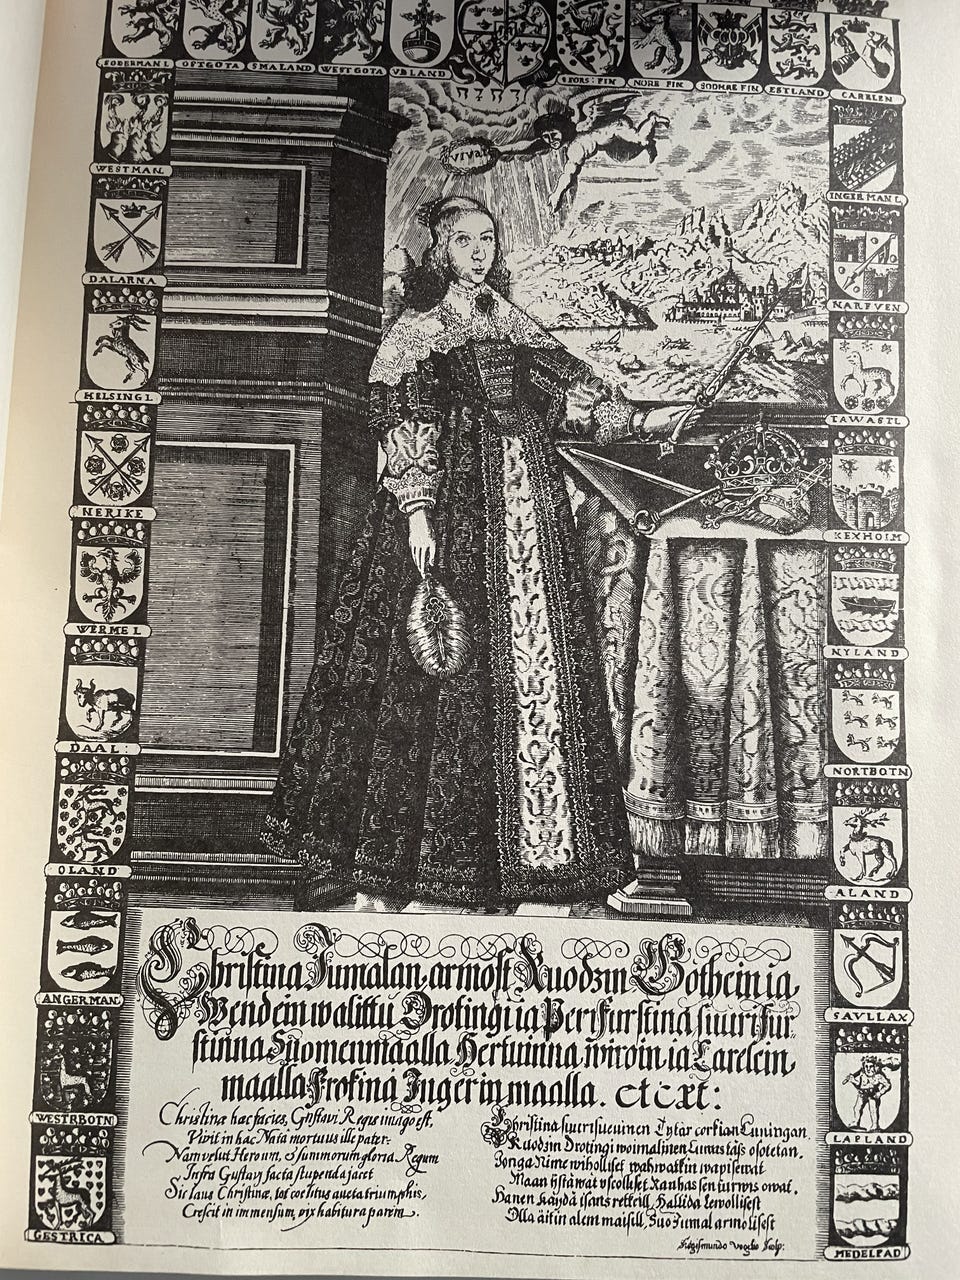 SÖDERMANL
OSTGOTA
SMALAND
WESTGOTA
VBLAND
NORR FIN
SÖDHRE FIN
ESTLAND
CARELEN
WESTMAN
DALARNA
HELSINGL
NERIKE
WERMEL
DAAL:
OLAND
ANGERMAN
WESTRBOTN
GESTRICA
INGERMANL
NARFVEN
TAWASTL
KEXHOLM
NYLAND
NORTBOTN
ALAND
SAVLLAX
LAPLAND
MEDELPAD
יהוה
VIVAT
Christina Jumalan armost Ruodzin Göthein ia
Wendein walittu Drotingi ia Perifurstina suuri fur-
stinna Suomenmaalla Hertuinna wiroin ia Carelein
maalla Frokina Ingerin maalla. etc etc:
Christina hæc facies, Gustavi Regis imago est,
Vivit in hac Nata mortuus ille pater.
Nam velut Heroum, & summorum gloria Regum
Infra Gustavj facta stupenda jacet
Sic laus Christinæ, tot cœlitus aucta triumphis,
Crescit in immensum, vix habitura parem.
Christina suurisueuinen Tytär corkian Cuningan
Ruodzin Drotingi woimalinen Cunnstas osotetan.
Jonga Nime wiholliset wahwatkin wapisewat
Maan ystäwät vscolliset Rauhas sen turwis owat.
Hänen käändä isäns retkeill, Hallida lewollisest
Olla äitin alem maisill, Suo Jumal armolisest
Sigismundo Vogelio Sculp: